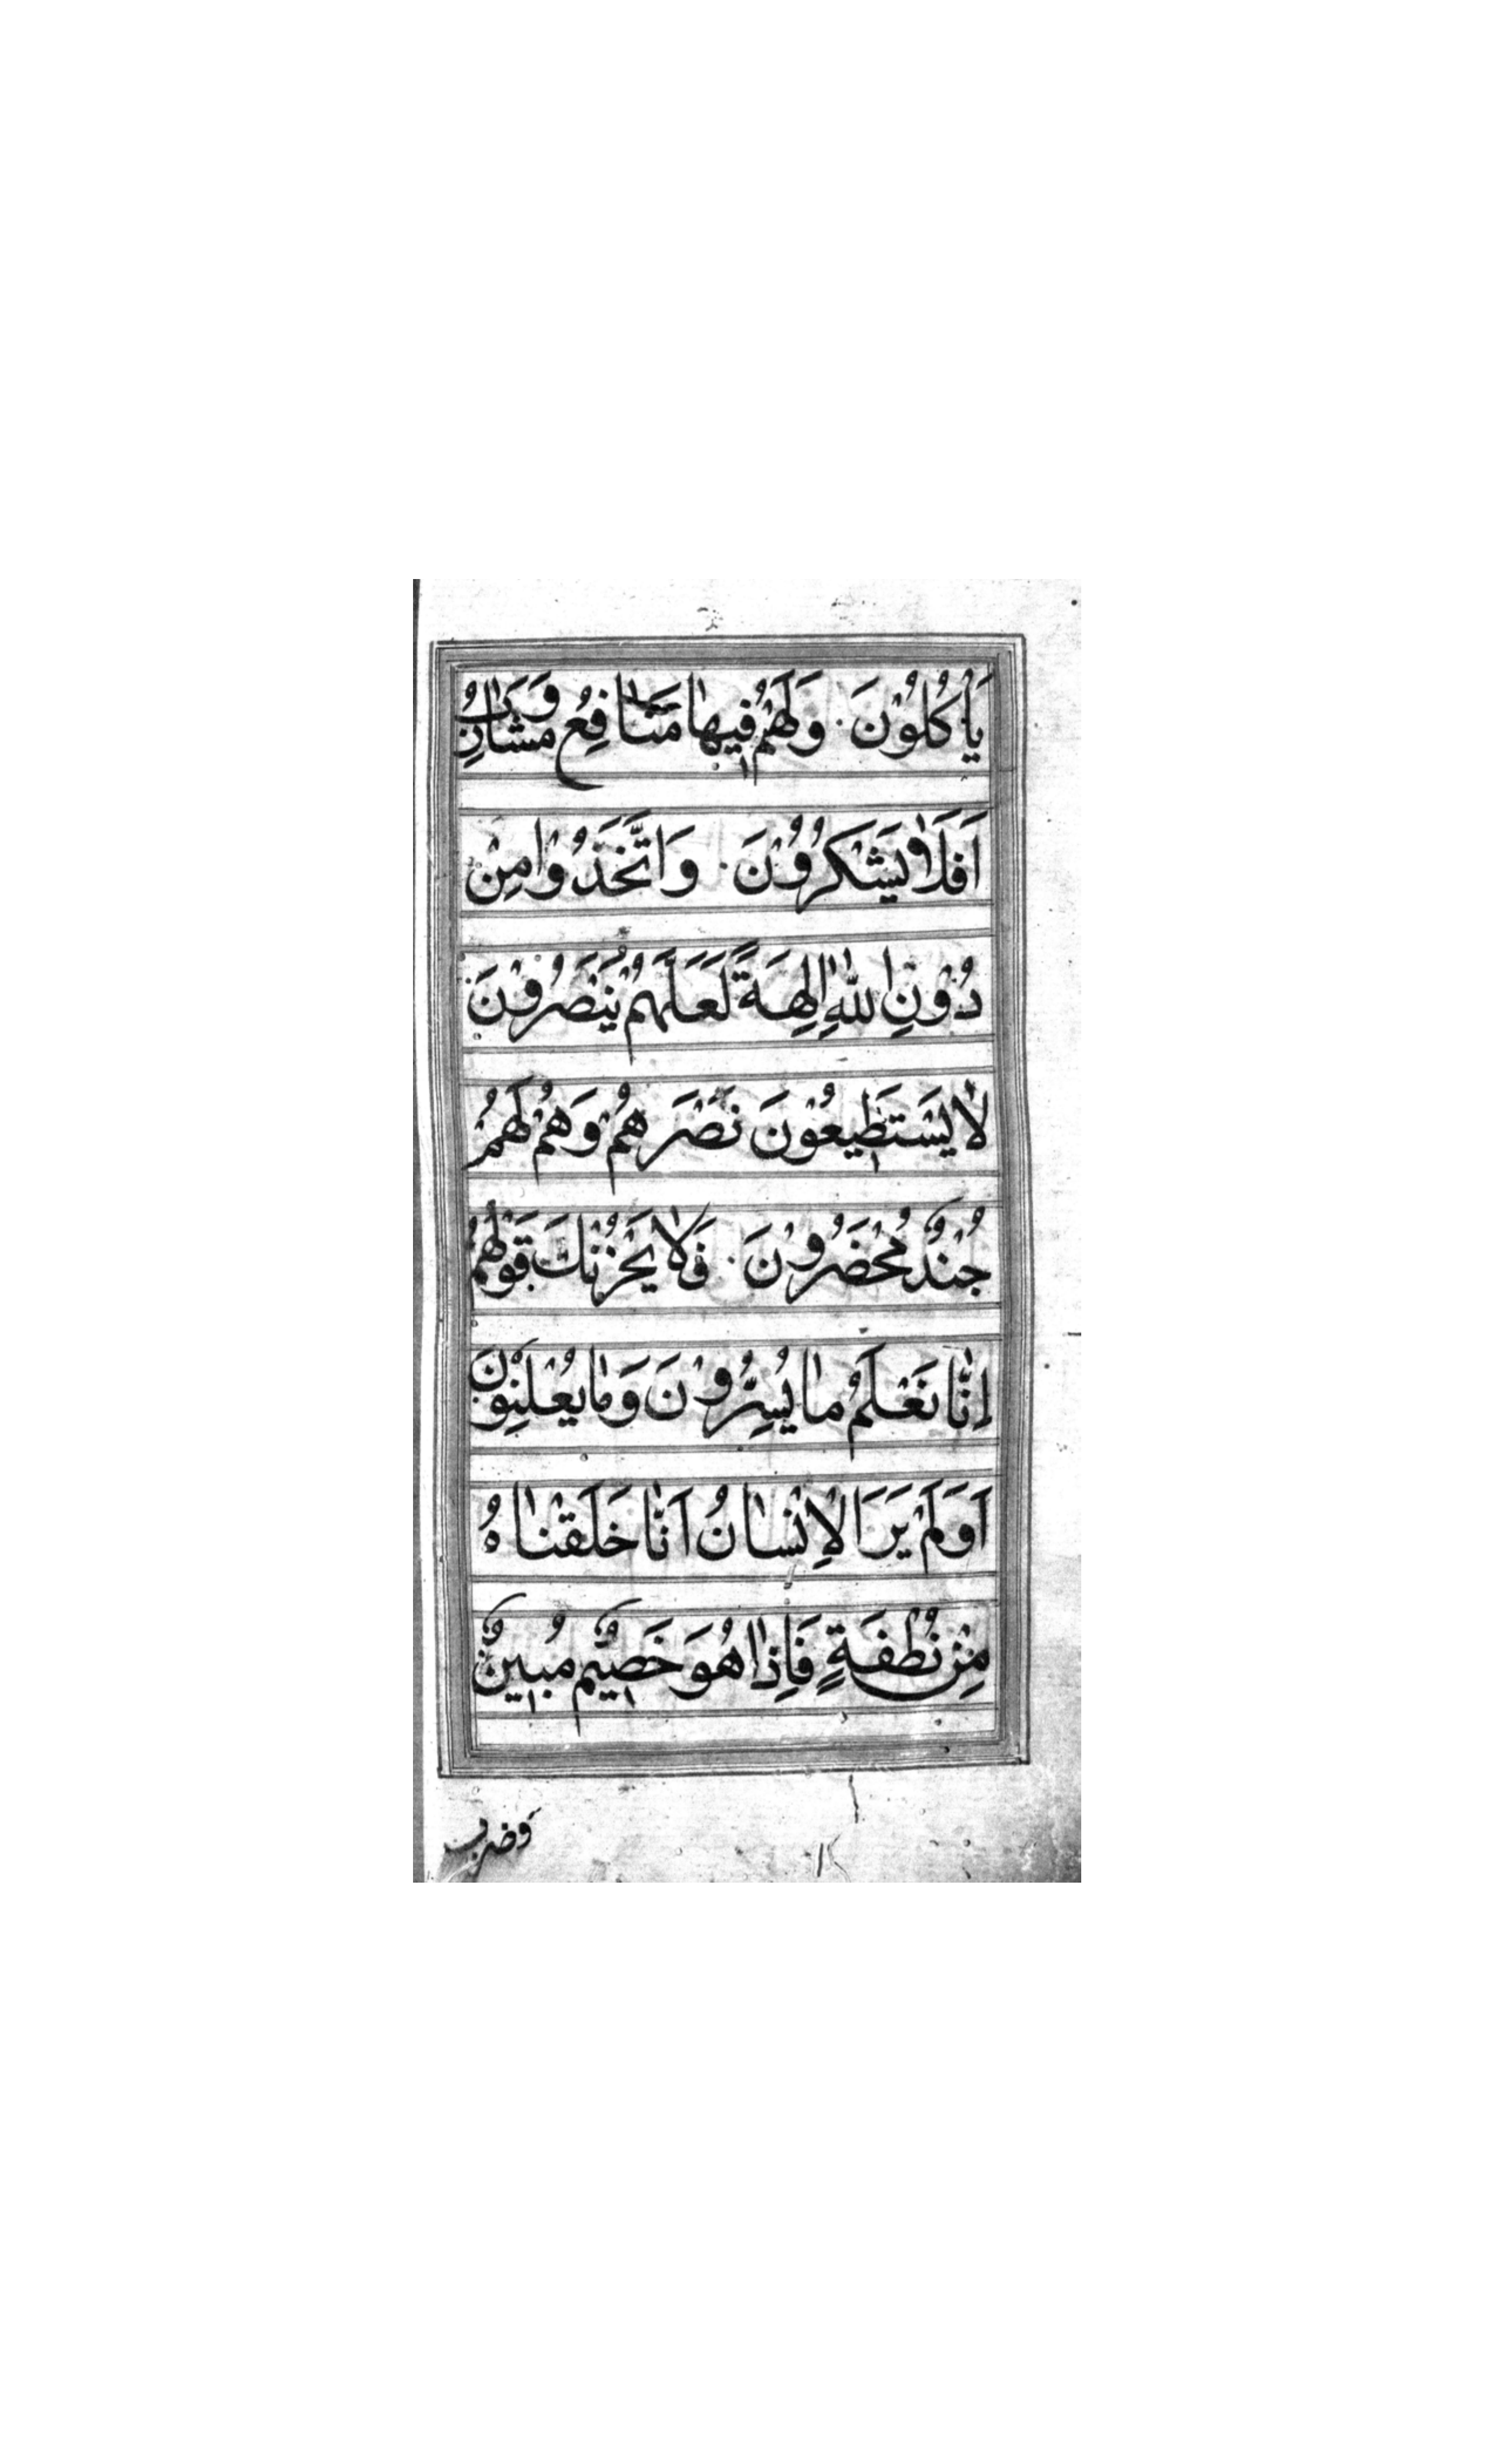 يَأْكُلُوْنَ وَلَهُمْ فِيهٰا مَنٰافِعُ وَمَشٰارِبُ
اَفَلاٰ يَشْكُرُوْنَ وَاتَّخَذُوْا مِنْ
دُوْنِ اللّٰهِ اٰلِهَةً لَعَلَّهُمْ يُنْصَرُوْنَ
لاٰ يَسْتَطِيعُوْنَ نَصْرَهُمْ وَهُمْ لَهُمْ
جُنْدٌ مُحْضَرُوْنَ فَلاٰ يَحْزُنْكَ قَوْلُهُمْ
اِنّٰا نَعْلَمُ مٰا يُسِرُّوْنَ وَمٰا يُعْلِنُوْنَ
اَوَلَمْ يَرَ الْاِنْسٰانُ اَنّٰا خَلَقْنٰاهُ
مِنْ نُطْفَةٍ فَاِذٰا هُوَ خَصِيْمٌ مُبِينٌ
وَضرب